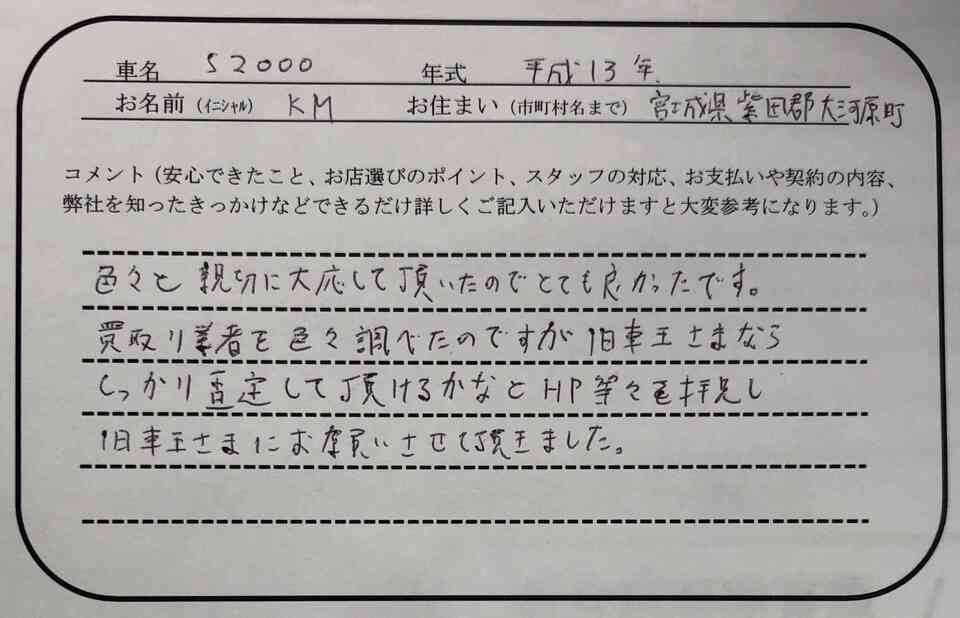 車名 S2000 年式 平成13年.
お名前（イニシャル） KM お住まい（市町村名まで） 宮城県柴田郡大河原町
コメント（安心できたこと、お店選びのポイント、スタッフの対応、お支払いや契約の内容、
弊社を知ったきっかけなどできるだけ詳しくご記入いただけますと大変参考になります。）
色々と親切に大応して頂いたのでとても良かったです。
買取り業者を色々調べたのですが旧車王さまなら
しっかり査定して頂けるかなとHP等々を拝見し
旧車王さまにお買いさせて頂きました。